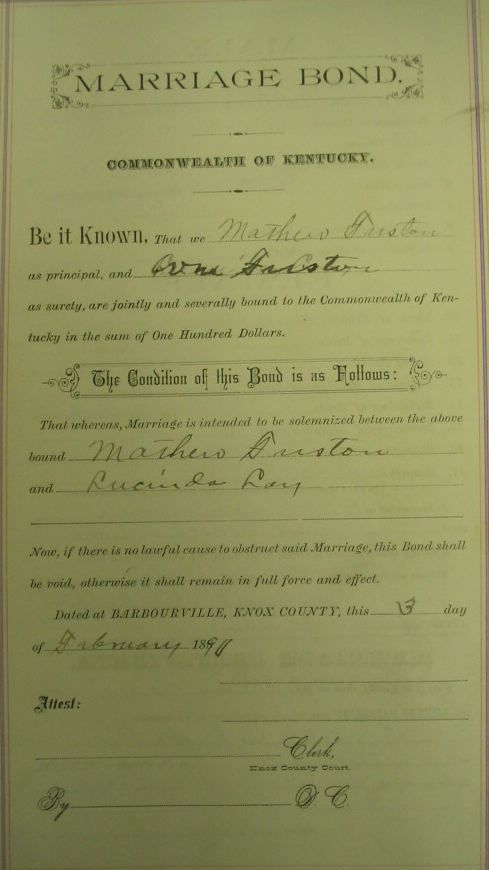 MARRIAGE BOND.
COMMONWEALTH OF KENTUCKY.
Be it Known, That we Mathew Triston
as principal, and Wm Triston
as surety, are jointly and severally bound to the Commonwealth of Ken-
tucky in the sum of One Hundred Dollars.
The Condition of this Bond is as Follows:
That whereas, Marriage is intended to be solemnized between the above
bound Mathew Triston
and Lucinda Lay
Now, if there is no lawful cause to obstruct said Marriage, this Bond shall
be void, otherwise it shall remain in full force and effect.
Dated at BARBOURVILLE, KNOX COUNTY, this 3 day
of February 189
Attest:
Clerk,
Knox County Court.
By D. C.